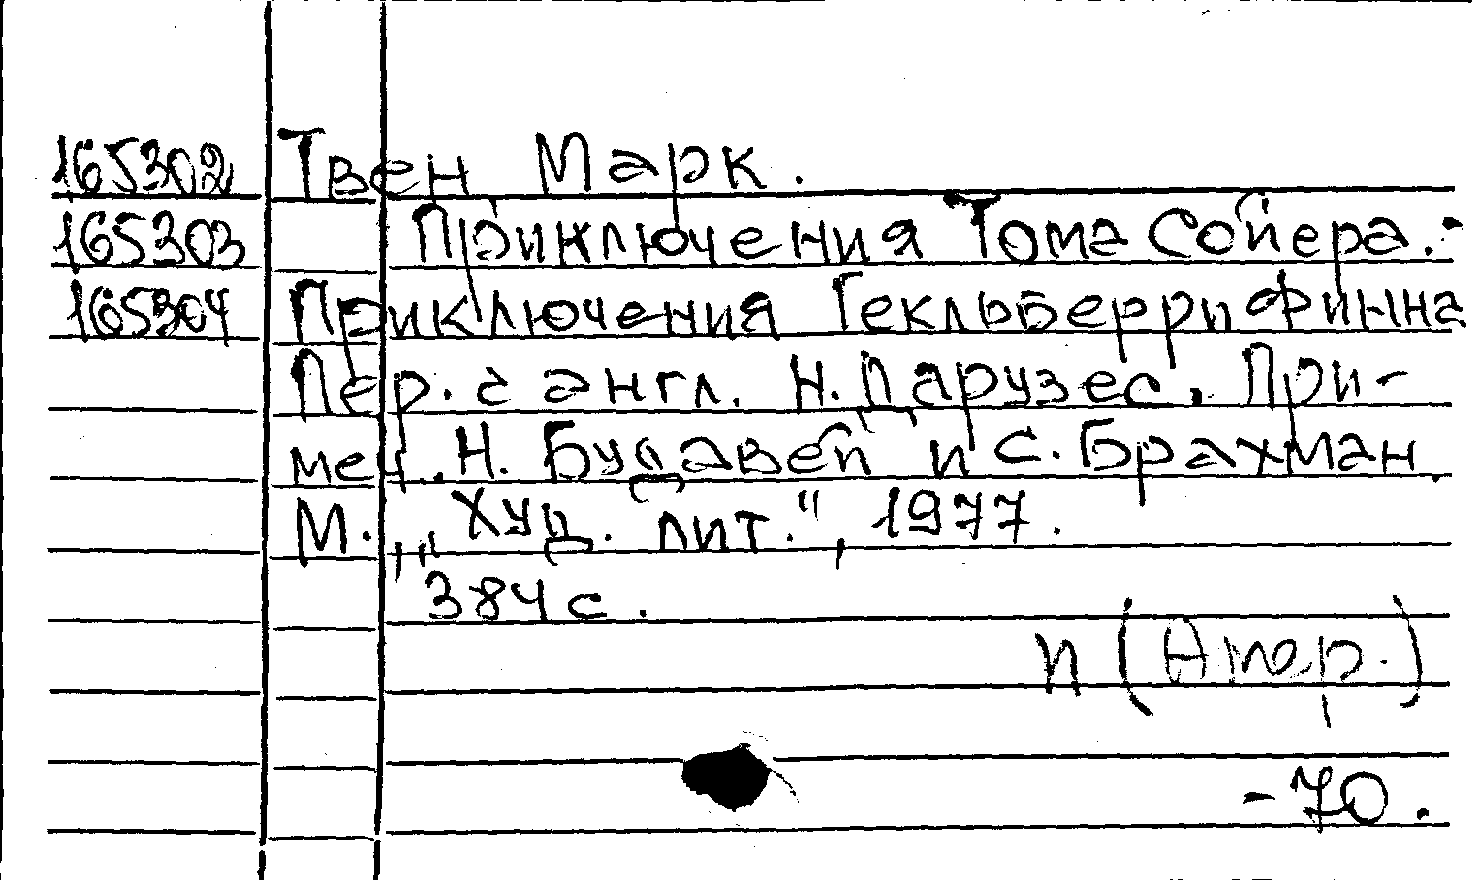 165302 Твен Марк.
165303 Приключения Тома Сойера.-
165304 Приключения Гекльберри Финна
Пер. с англ. Н. Дарузес. При-
меч. Н. Будавей и С. Брахман.
М. „Худ. лит.", 1977.
384 с.
И (Амер.)
-70.